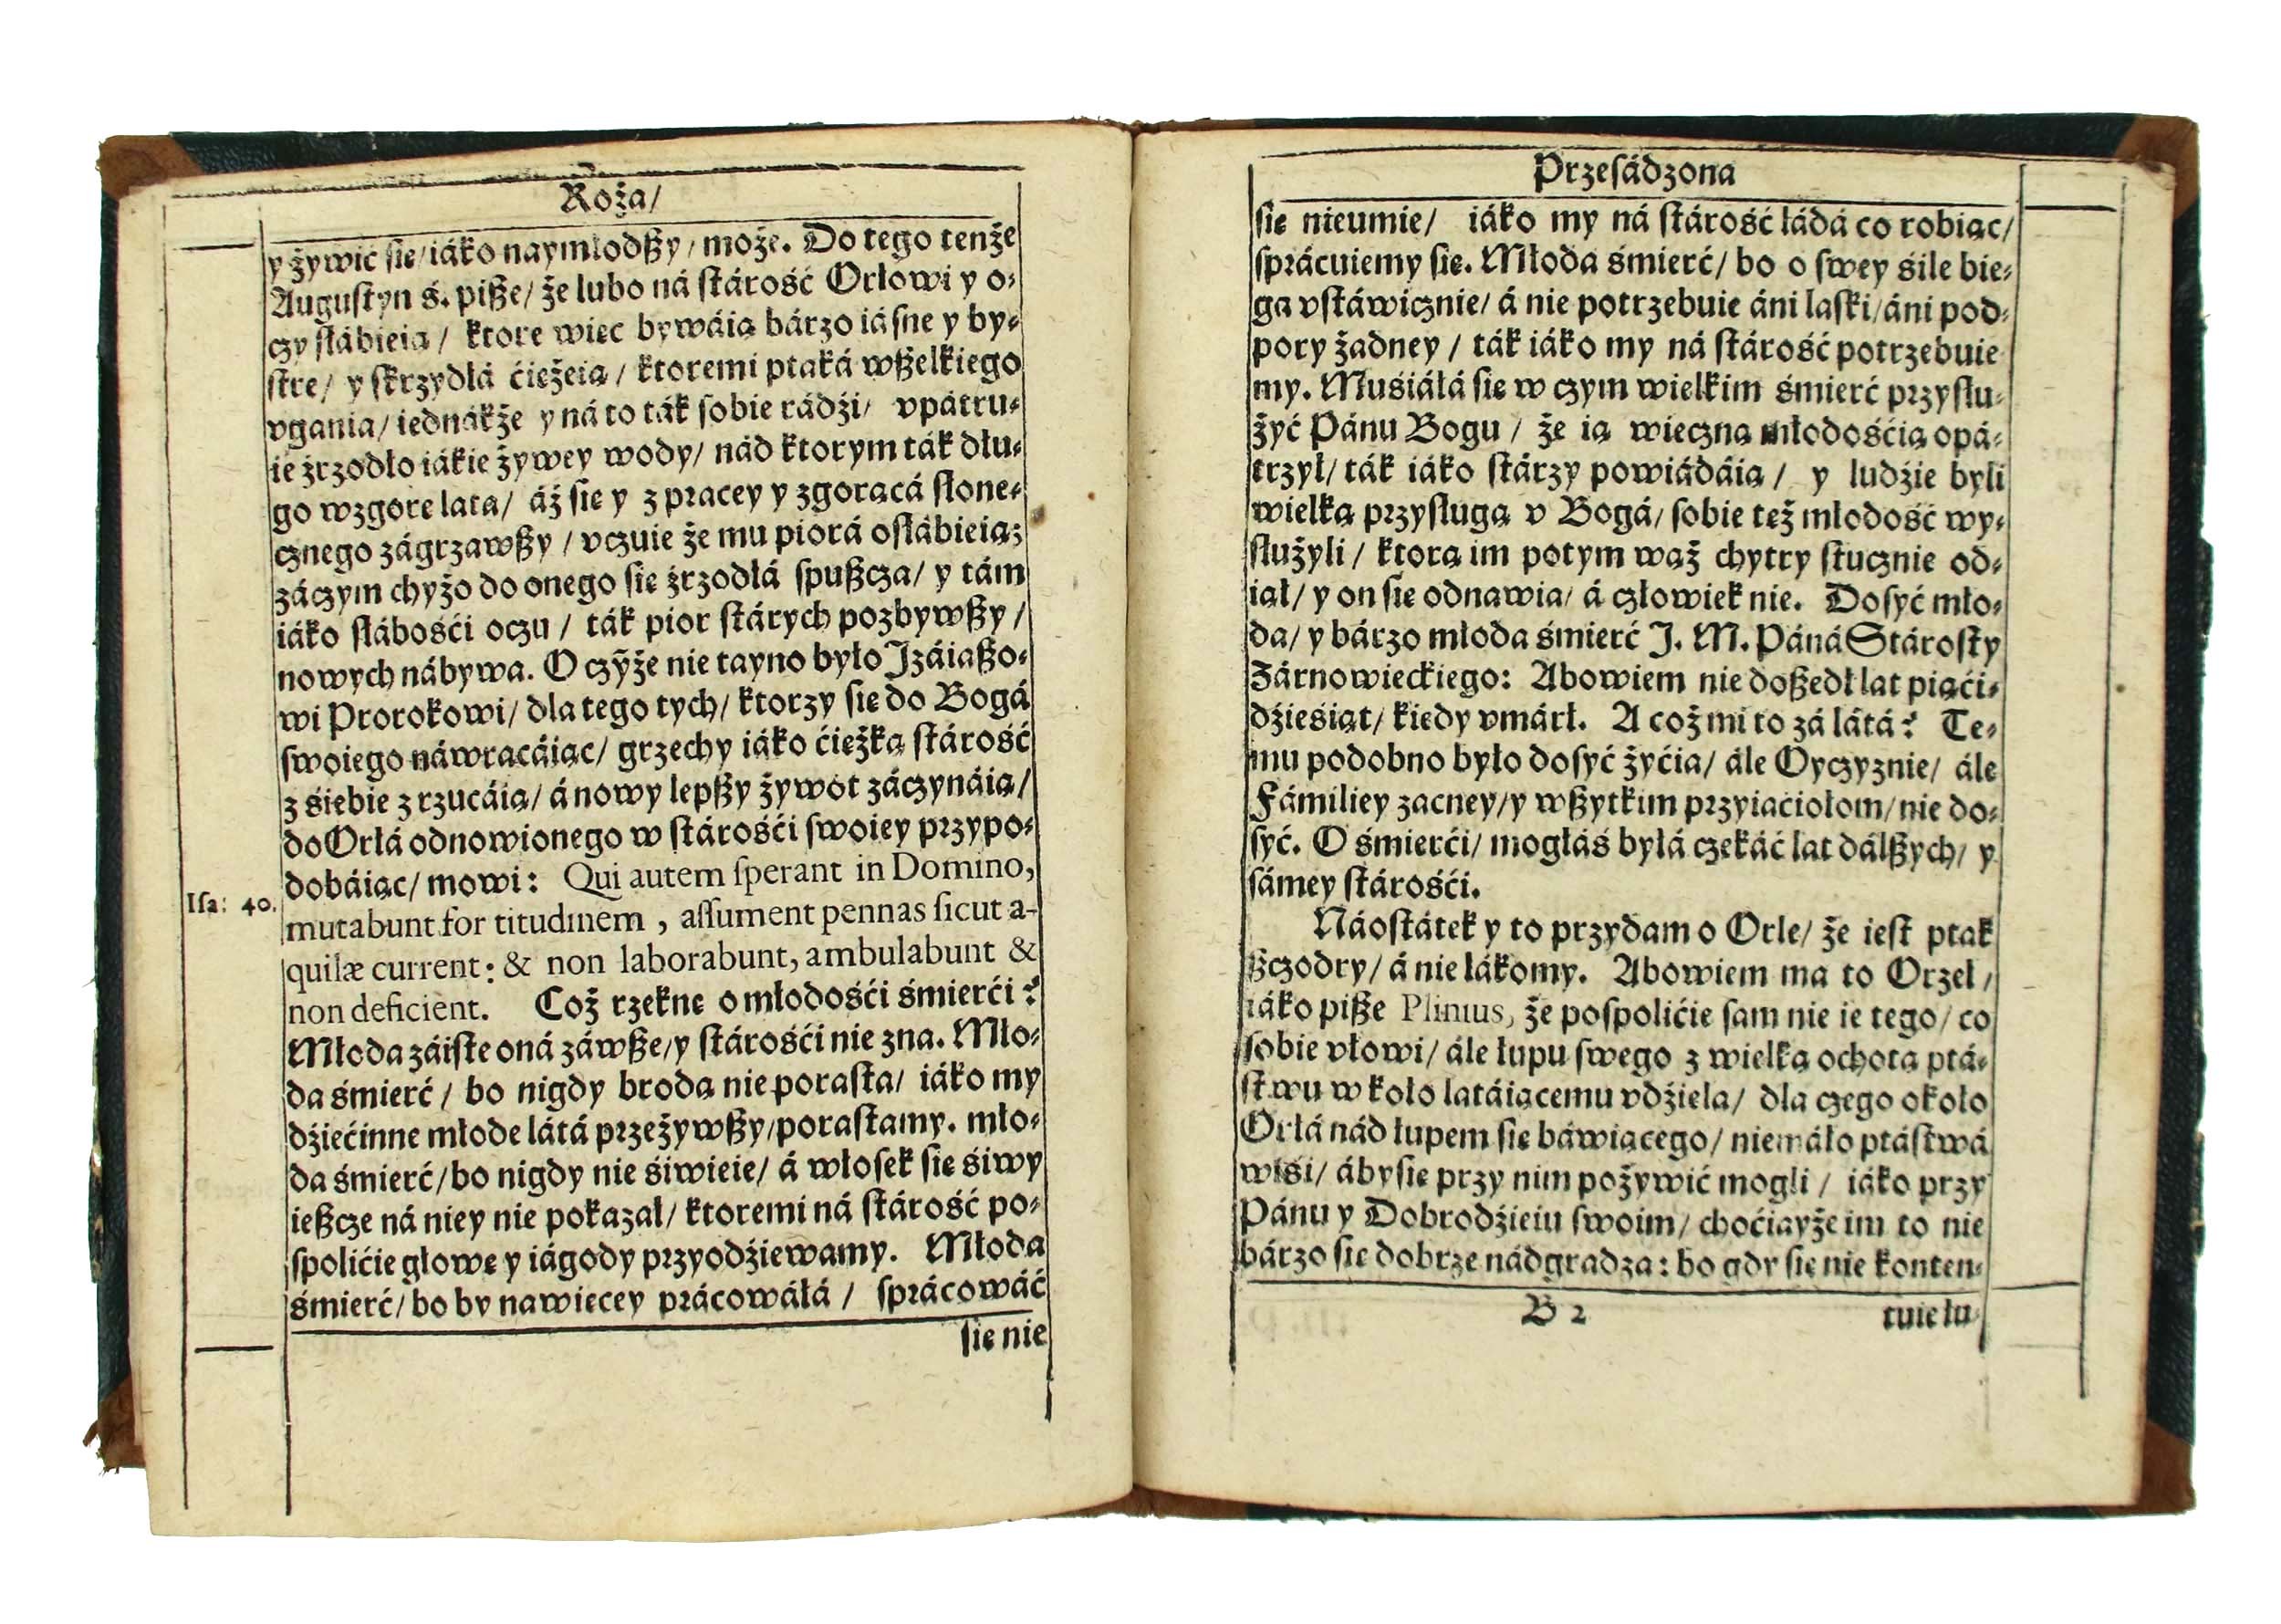 Roża/
y żywić ſię/ iáko naymłodßy/ może. Do tego tenże
Auguſtyn ś. piße/ że lubo ná ſtárość Orłowi y o⸗
czy ſłábieią/ ktore więc bywáią bárzo iáſne y by⸗
ſtre/ y ſkrzydłá ćiężeią/ ktoremi ptaká wßelkiego
vgania/ iednákże y ná to ták ſobie rádźi/ vpátru⸗
ie źrzodło iákie żywey wody/ nád ktorym ták dłu⸗
go wzgorę lata/ áż ſię y z pracey y zgorącá ſłone⸗
cznego zágrzawßy/ vczuie że mu piorá oſłábieią;
záczym chyżo do onego ſię źrzodłá ſpußcza/ y tám
iáko ſłábośći oczu/ ták pior ſtárych pozbywßy/
nowych nábywa. O czỹże nie tayno było Jzáiaßo⸗
wi Prorokowi/ dla tego tych/ ktorzy ſię do Bogá
ſwoiego náwracáiąc/ grzechy iáko ćięſzką ſtárość
z śiebie zrzucáią/ á nowy lepßy żywot záczynáią/
do Orłá odnowionego w ſtárośći ſwoiey przypo⸗
dobáiąc/ mowi: Qui autem ſperant in Domino,
Iſa: 40.
mutabunt for titudinem , aſſument pennas ſicut a-
quilæ current: & non laborabunt, ambulabunt &
non deficient. Coż rzeknę o młodośći śmierći?
Młoda záiſte oná záwße/ y ſtárośći nie zna. Mło⸗
da śmierć/ bo nigdy brodą nie poraſta/ iáko my
dźiećinne młode látá przeżywßy/ poraſtamy. mło⸗
da śmierć/ bo nigdy nie śiwieie/ á włoſek ſię śiwy
ießcze ná niey nie pokazał/ ktoremi ná ſtárość po⸗
ſpolićie głowę y iágody przyodźiewamy. Młoda
śmierć/ bo by nawięcey prácowáłá/ ſprácowáć
ſię nie
Przeſádzona
ſię nieumie/ iáko my ná ſtárość ládá co robiąc/
ſprácuiemy ſię. Młoda śmierć/ bo o ſwey śile bie⸗
ga vſtáwicznie/ á nie potrzebuie áni laſki/ áni pod⸗
pory żadney/ ták iáko my ná ſtárość potrzebuie
my. Muśiáłá ſię w czym wielkim śmierć przyſłu⸗
żyć Pánu Bogu/ że ią wieczną młodośćią opá⸗
trzył/ ták iáko ſtárzy powiádáią/ y ludźie byli
wielką przyſługą v Bogá/ ſobie też młodość wy⸗
ſłużyli/ ktorą im potym wąż chytry ſtucznie od⸗
iął/ y on ſię odnawia/ á człowiek nie. Doſyć mło⸗
da/ y bárzo młoda śmierć J. M. Páná Stároſty
Zárnowieckiego: Abowiem nie doßedł lat pięći⸗
dźieśiąt/ kiedy vmárł. A coż mi to zá látá? Te⸗
mu podobno było doſyć żyćia/ ále Oyczyznie/ ále
Fámiliey zacney/ y wßytkim przyiaciołom/ nie do⸗
ſyć. O śmierći/ mogłáś byłá czekáć lat dálßych/ y
ſámey ſtárośći.
Náoſtátek y to przydam o Orle/ że ieſt ptak
ßczodry/ á nie łákomy. Abowiem ma to Orzeł/
iáko piße Plinius, że poſpolićie ſam nie ie tego/ co
ſobie vłowi/ ále łupu ſwego z wielką ochotą ptá⸗
ſtwu w koło latáiącemu vdźiela/ dla czego około
Orłá nád łupem ſię báwiącego/ niemáło ptáſtwá
wiśi/ áby ſię przy nim pożywić mogli/ iáko przy
Pánu y Dobrodźieiu ſwoim/ choćiayże im to nie
bárzo ſię dobrze nádgradza: bo gdy ſię nie konten⸗
B 2
tuie łu⸗